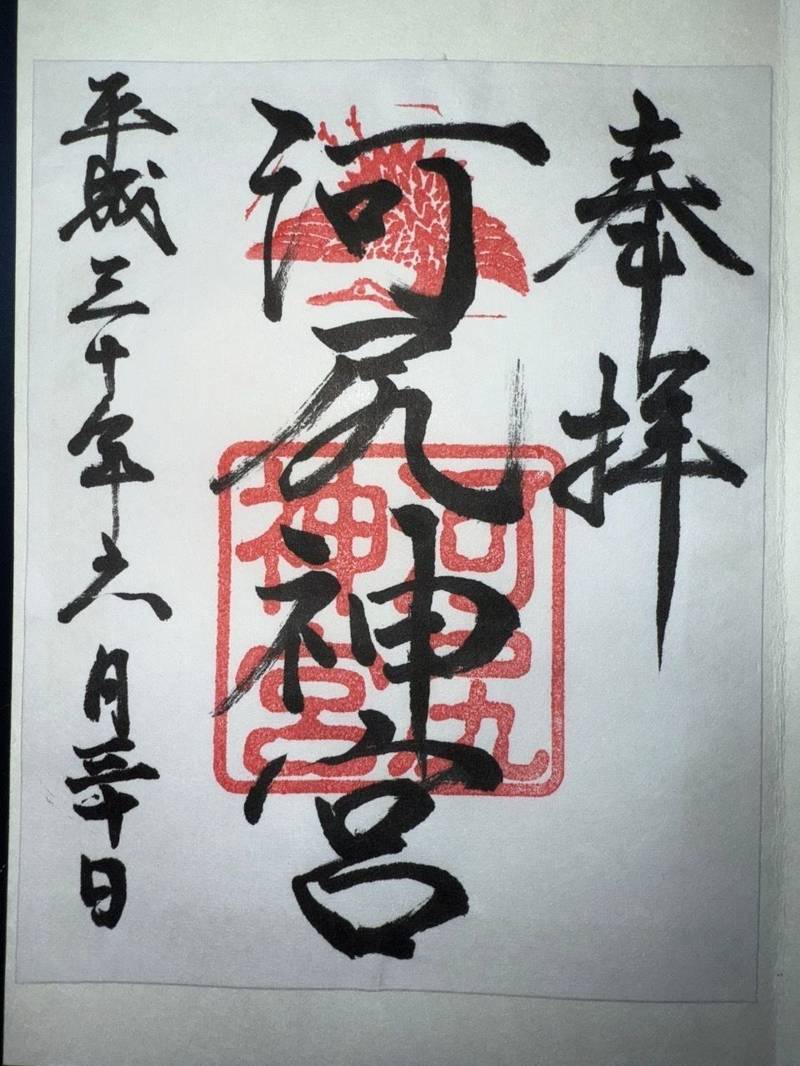 奉拝
河尻神宮
河尻神宮
平成三十年六月三十日